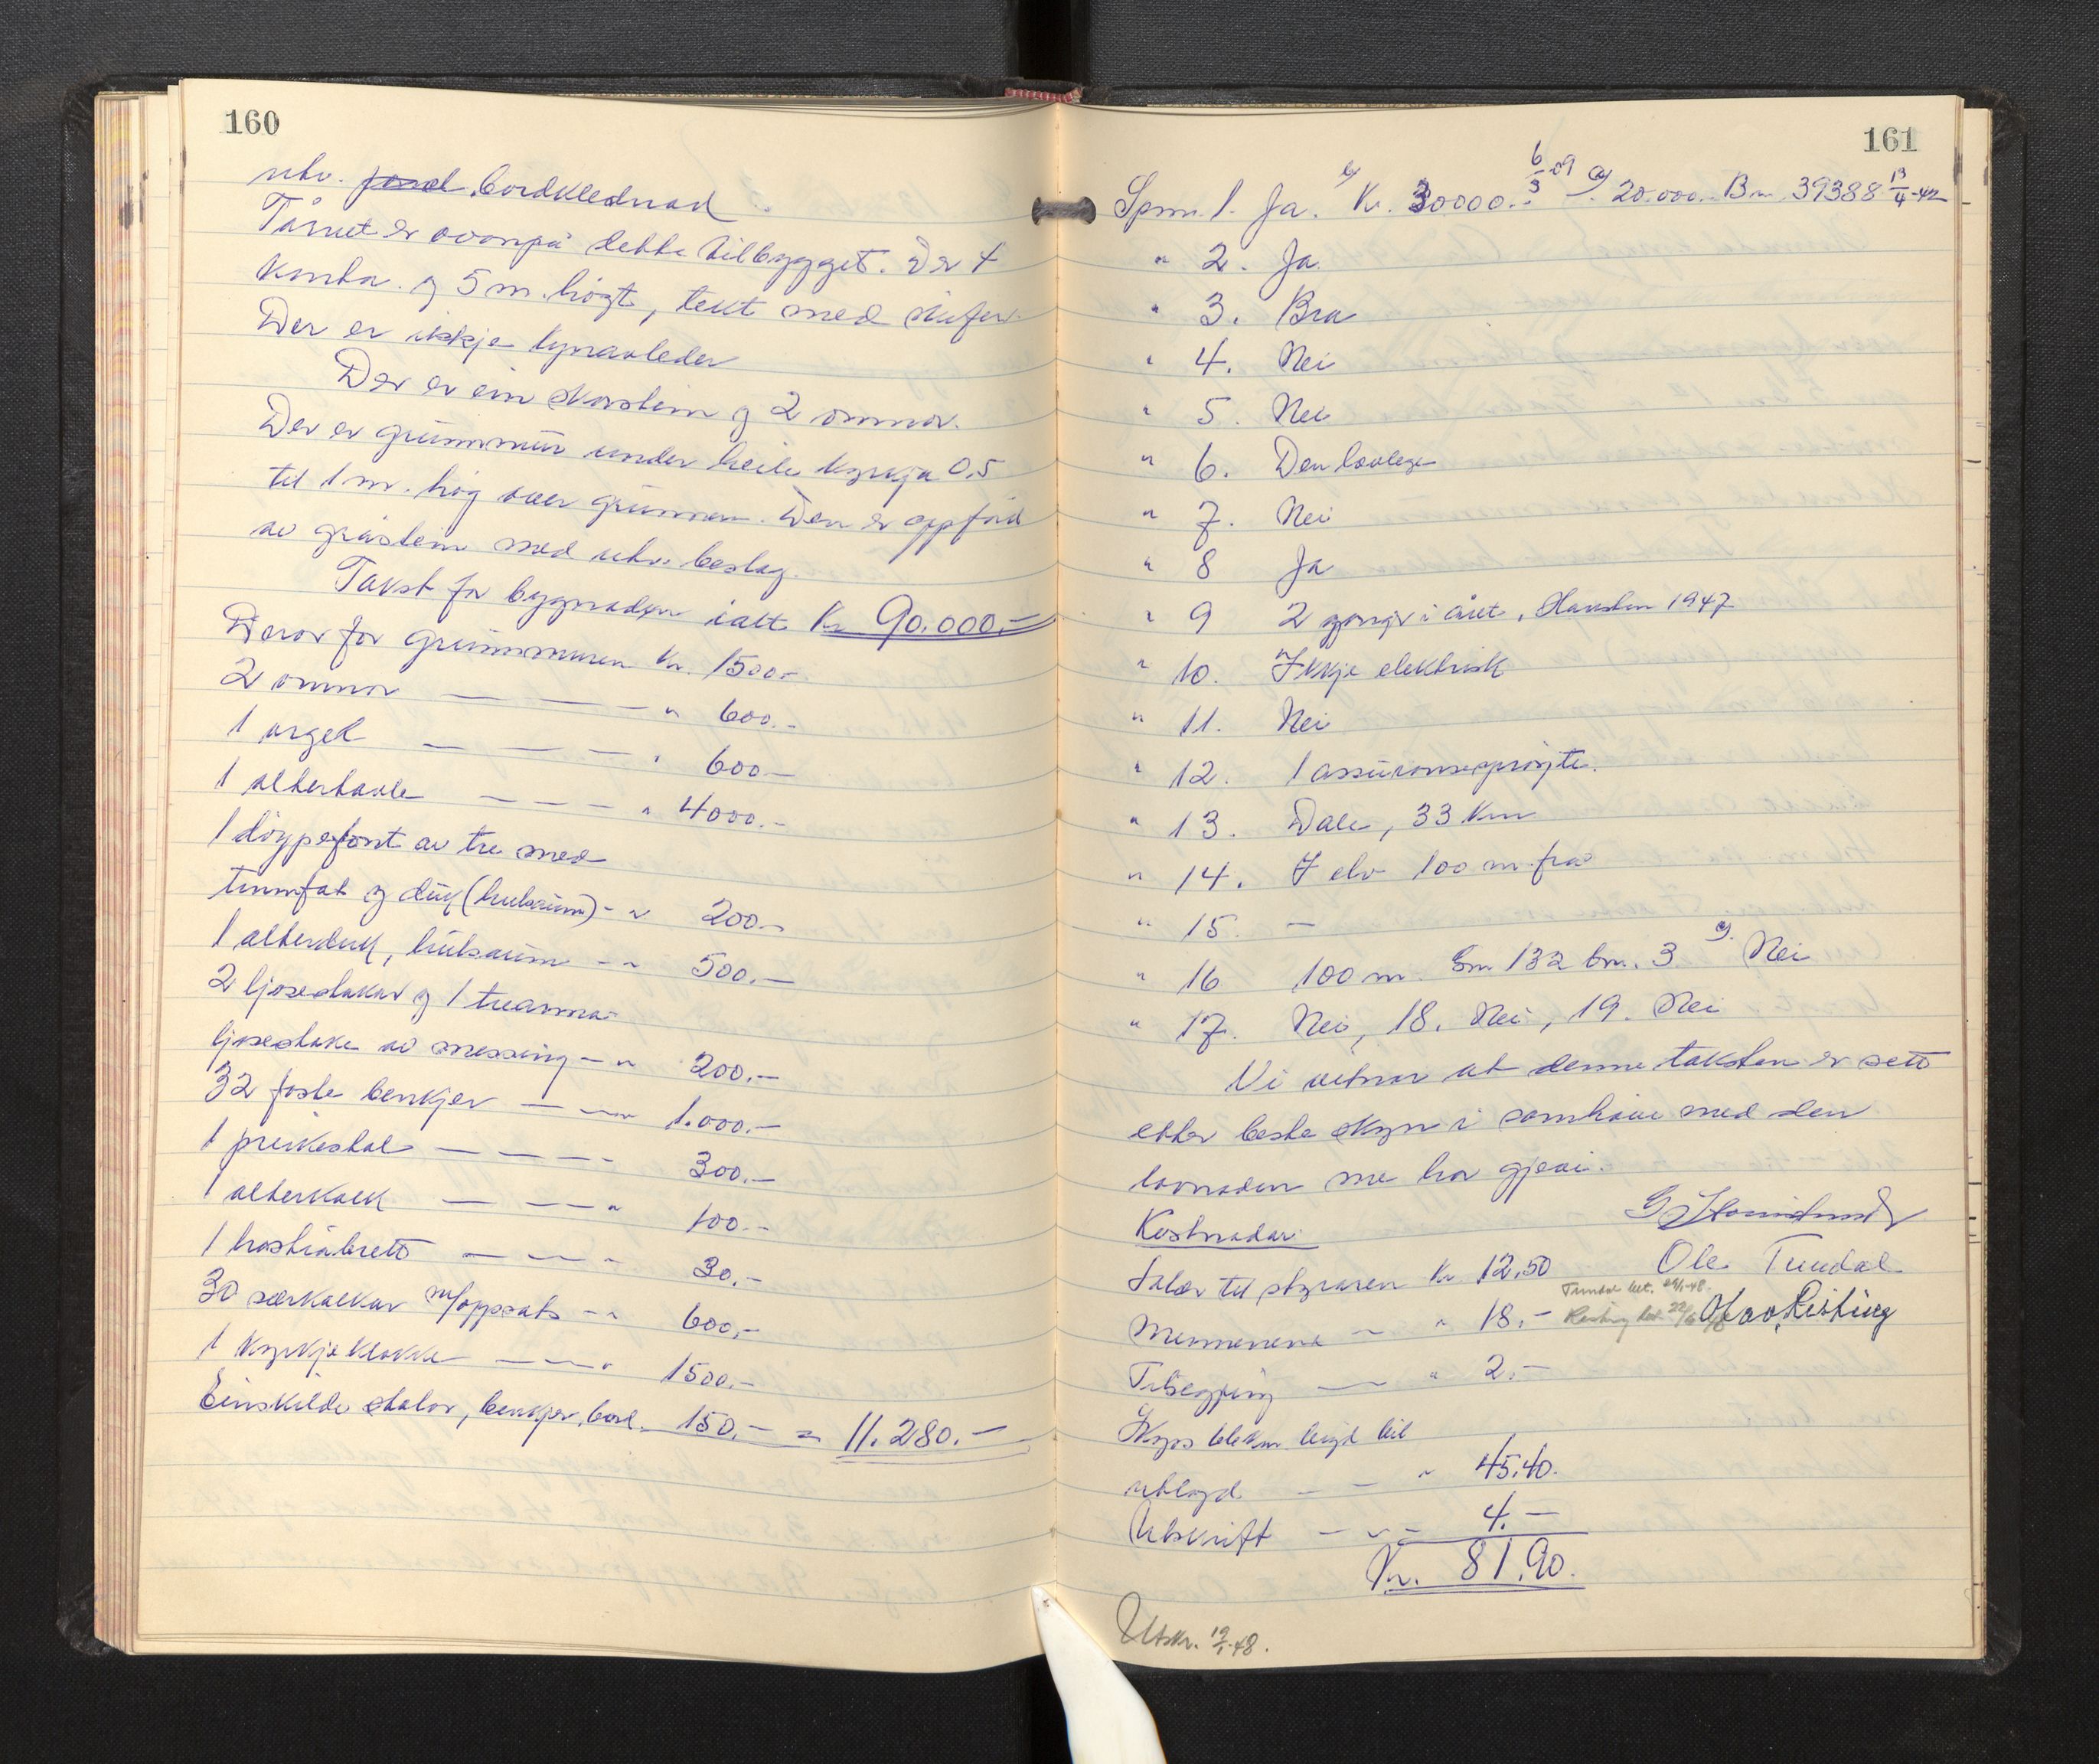 160
utv. bordklednad.
Tårnet er ovanpå dette tilbygget. D er 4
kanta. og 5 m. högt, tekt med skifer.
Der er ikkje lynavleder
Der er ein skorstein og 2 omnar.
Der er grunnmur under heile kyrkja 0,5
til 1 m. høg over grunnen. Den er oppförd
av gråstein med utv. beslag.
Takst for bygnaden ialt Kr 90.000.-
Derav for grunnmuren Kr. 1500.-
2 omnar — — — — " 600.-
1 orgel — — — — " 600.-
1 altertavle — — — " 4000.-
1 döypefont av tre med
tinnfat og duk (hulsaum) - " 200.-
1 alterduk, hulsaum - " 500.-
2 ljosestakar og 1 treárma
ljosestake av messing - " 200.-
32 faste benkjer — — " 1.000.-
1 preikestol — — — — 300.-
1 alterkalk — — — " 100.-
1 hostiabrett — — — " 30.-
30 særkalkar m/oppsats - " 600.-
1 kyrkjeklokke — — — " 1500.-
Einskilde stolar, benkjer, bord. 150.- = 11.280.-
161
Spm. 1. Ja. Kr. 30000.- 6/3-29 og 20.000.- B nr. 39388 13/4-42
" 2. Ja.
" 3. Bra
" 4. Nei
" 5. Nei
" 6. Den lovlege
" 7. Nei
" 8 Ja
" 9 2 gonger i året, Hausten 1947
" 10. Ikkje elektrisk
" 11. Nei
" 12. 1 assuransesprøyte.
" 13. Dale, 33 Km
" 14. I elv 100 m. frå
" 15. —
" 16 100 m. Gn. 132 bn. 3 Nei
" 17. Nei, 18. Nei, 19. Nei
Vi vitnar at denne taksten er sett
etter beste skyn i samhöve med den
lovnaden me har gjevi.
Kostnadar:
Salær til styraren Kr 12,50
Ole Tundal
Tundal bet.
Mennenene — " 18,-
Risting bet
Olav Risting
Tilsegjing — " 2.-
Skyss
utlagd — — " 45,40.
Utskrift — " — 4.-
Kr. 81,90.
Utskr. 19/1-48.